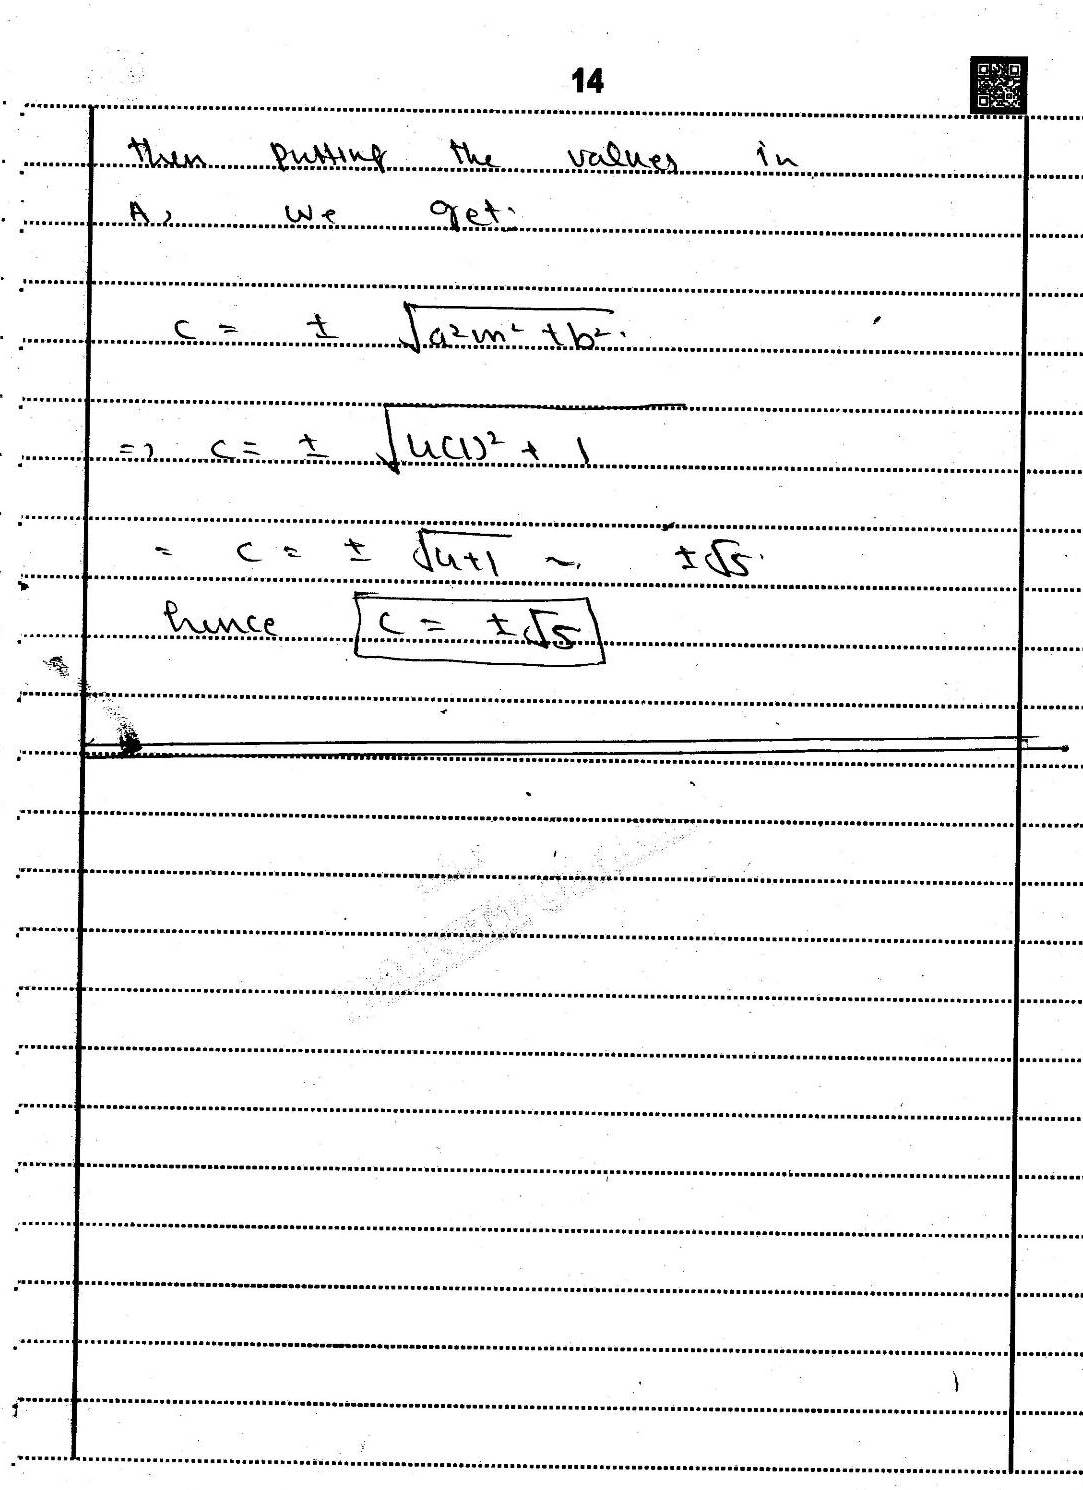 14
then putting the values in
A, we get:
c = ± √a²m² + b².
=> c = ± √4(1)² + 1
= c = ± √4+1 ~ ±√5.
hence c = ±√5